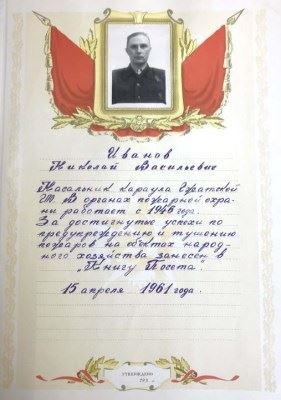 Иванов
Николай Васильевич
Начальник караула
В органах пожарной охра-
ны работает с 1946 года.
За достигнутые успехи по
предупреждению и тушению
пожаров на объектах народ-
ного хозяйства занесен в
"Книгу Почета".
15 апреля 1961 года.
УТВЕРЖДЕНО